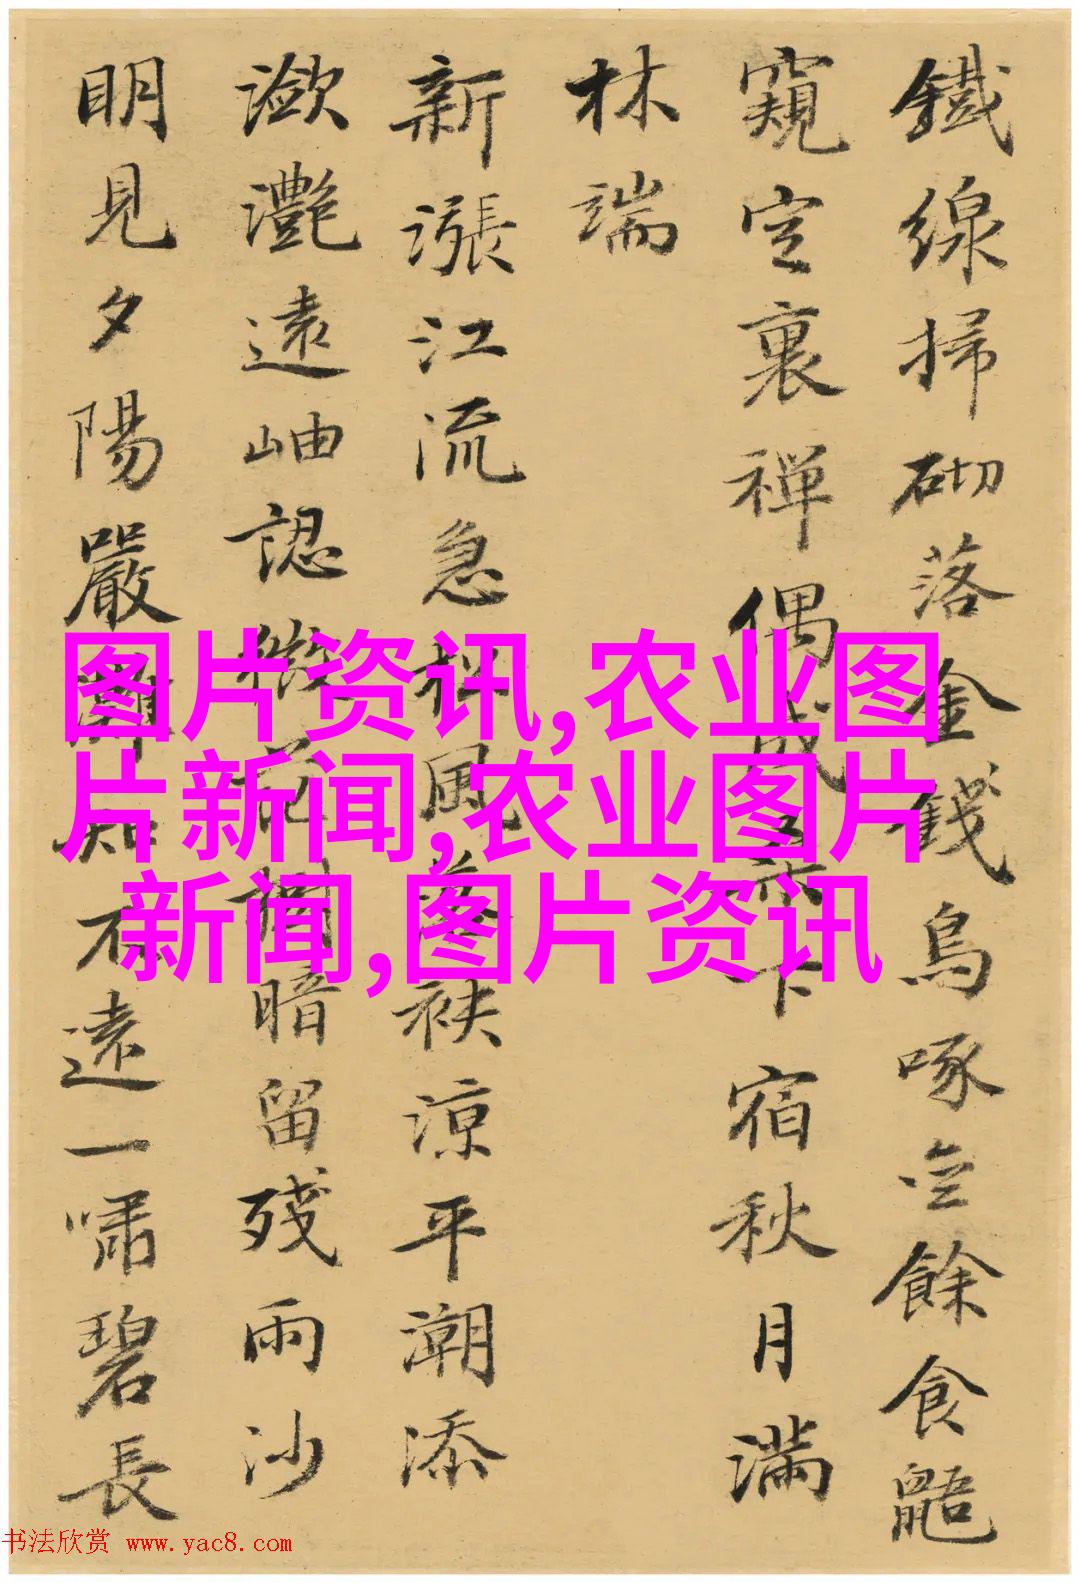 鐵線掃砌落金錢烏啄餘食鼯
窺定裏禪偶成宿秋月滿
林端
新漲江流急風袂涼平潮添
瀲灩遠岫認微暗留殘雨沙
明見夕陽嚴灘知不遠一嘯碧長
图片资讯,农业图
片新闻,农业图片
新闻,图片资讯
书法欣赏 www.yac8.com